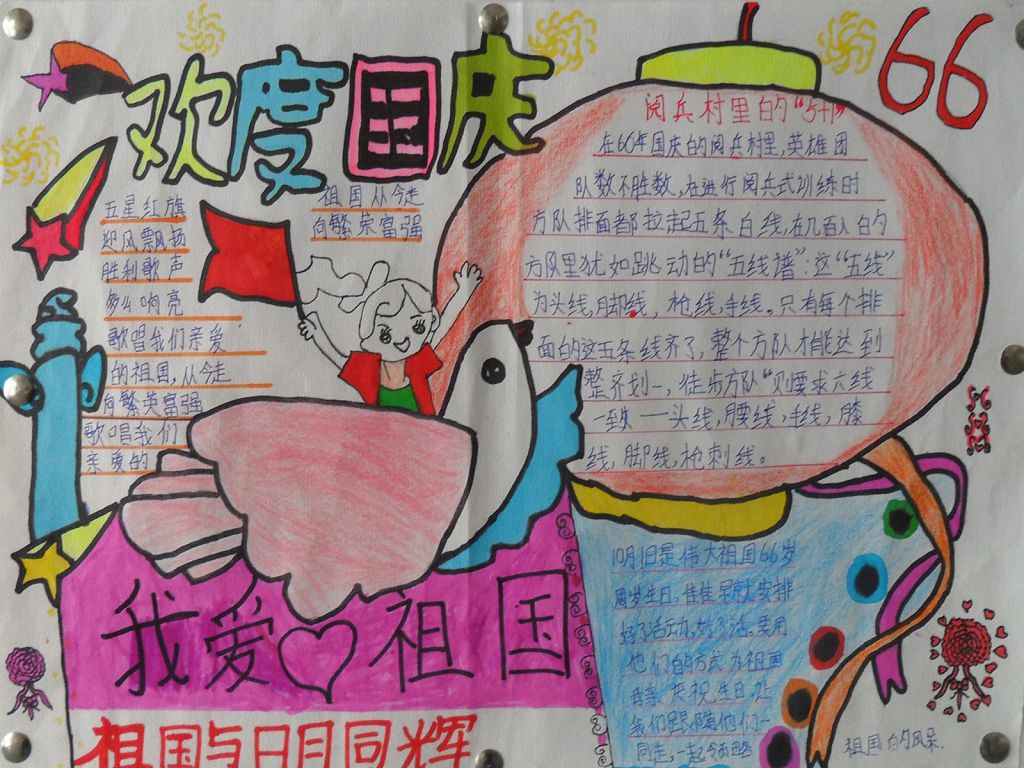 欢度国庆
66
五星红旗
迎风飘扬
胜利歌声
多么响亮
歌唱我们亲爱
的祖国,从今走
向繁荣富强
歌唱我们
亲爱的
祖国从今走
向繁荣富强
阅兵村里的“5+1”
在66年国庆的阅兵村里,英雄团
队数不胜数,在进行阅兵式训练时
方队排面都拉起五条白线,在几百人的
方队里犹如跳动的“五线谱”:这“五线”
为头线,脚线,枪线,手线。只有每个排
面的这五条线齐了,整个方队才能达到
整齐划一,徒步方队“则要求六线
一致——头线,腰线,手线,膝
线,脚线,枪刺线。
我爱祖国
祖国与日月同辉
10月1日是伟大祖国66岁
周岁生日,佳佳早就安排
好了活动,要用
他们的方式为祖国
母亲庆祝生日,让
我们跟随他们一
同走,一起领略
祖国的风采.